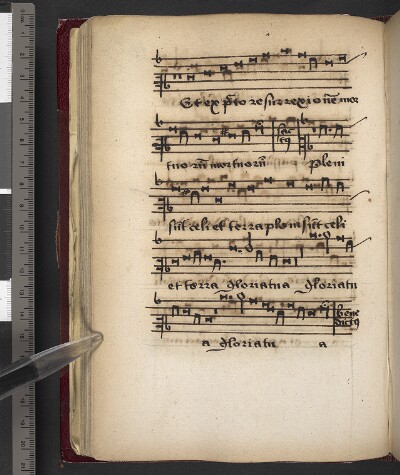 Et expecto resurrexionē mor
tuorū mortuorū Pleni
sūt celi et terra pleni sūt celi
et terra gloria tua gloria tu
a gloria tu a